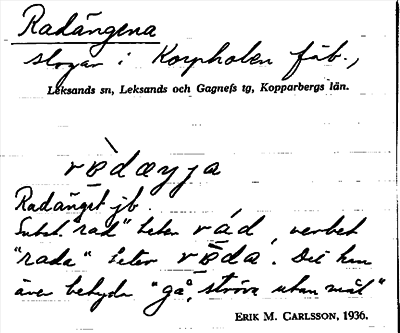 Radängena
slogar i Korpholen fäb.,
Leksands sn, Leksands och Gagnefs tg, Kopparbergs län.
rèdæŋja
Radänget jb.
Subst. "rad" heter rád, verbet
"rada" heter rèda. Det kan
även betyda "gå, ströva utan mål"
ERIK M. CARLSSON, 1936.